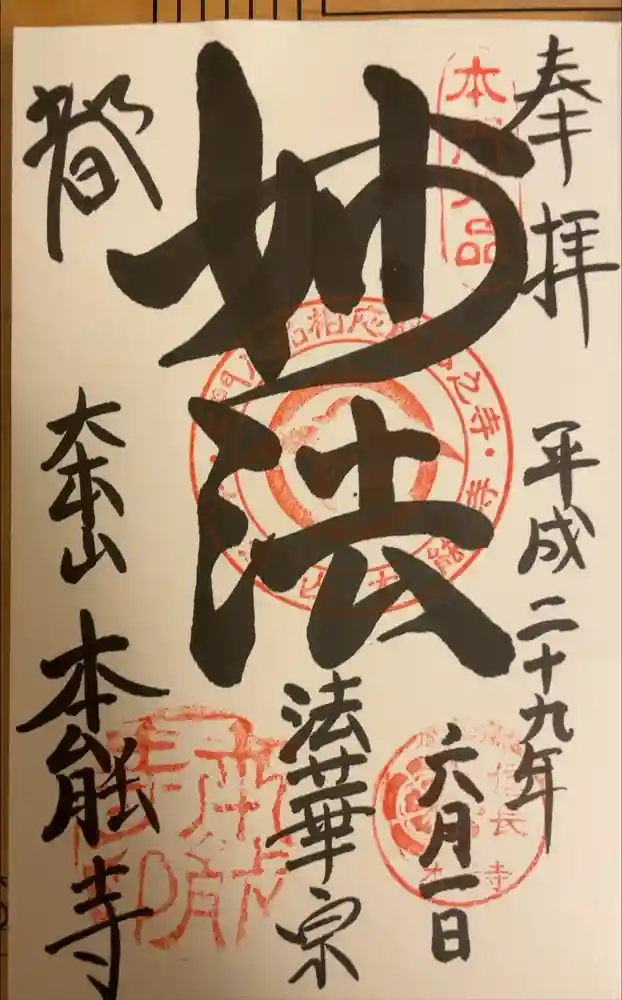 奉拝
平成二十九年
六月一日
妙法
法華宗
都
大本山
本能寺